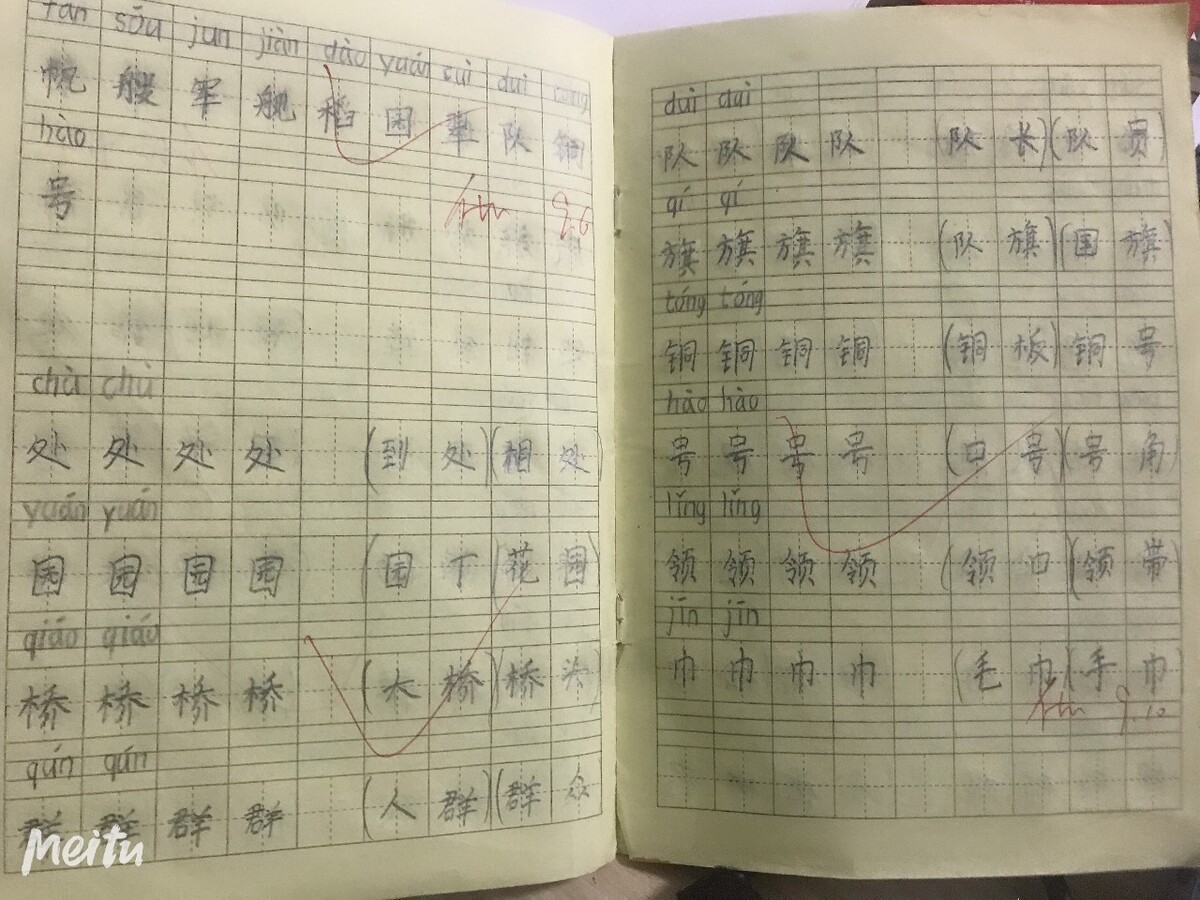 fān sōu jun jiàn dào yuán cuì duì tóng
帆 艘 军 舰 稻 园 翠 队 铜
hào
号
9.6
chù chù
处 处 处 处 (到 处)(相 处)
yuán yuán
园 园 园 园 (园 丁)(花 园)
qiáo qiáo
桥 桥 桥 桥 (木 桥)(桥 头)
qún qún
群 群 群 群 (人 群)(群 众
Meitu
duì duì
队 队 队 队 (队 长)(队 员)
qí qí
旗 旗 旗 旗 (队 旗)(国 旗)
tóng tóng
铜 铜 铜 铜 (铜 板)(铜 号
hào hào
号 号 号 号 (口 号)(号 角
lǐng lǐng
领 领 领 领 (领 口)(领 带
jīn jīn
巾 巾 巾 巾 (毛 巾)(手 巾
9.10